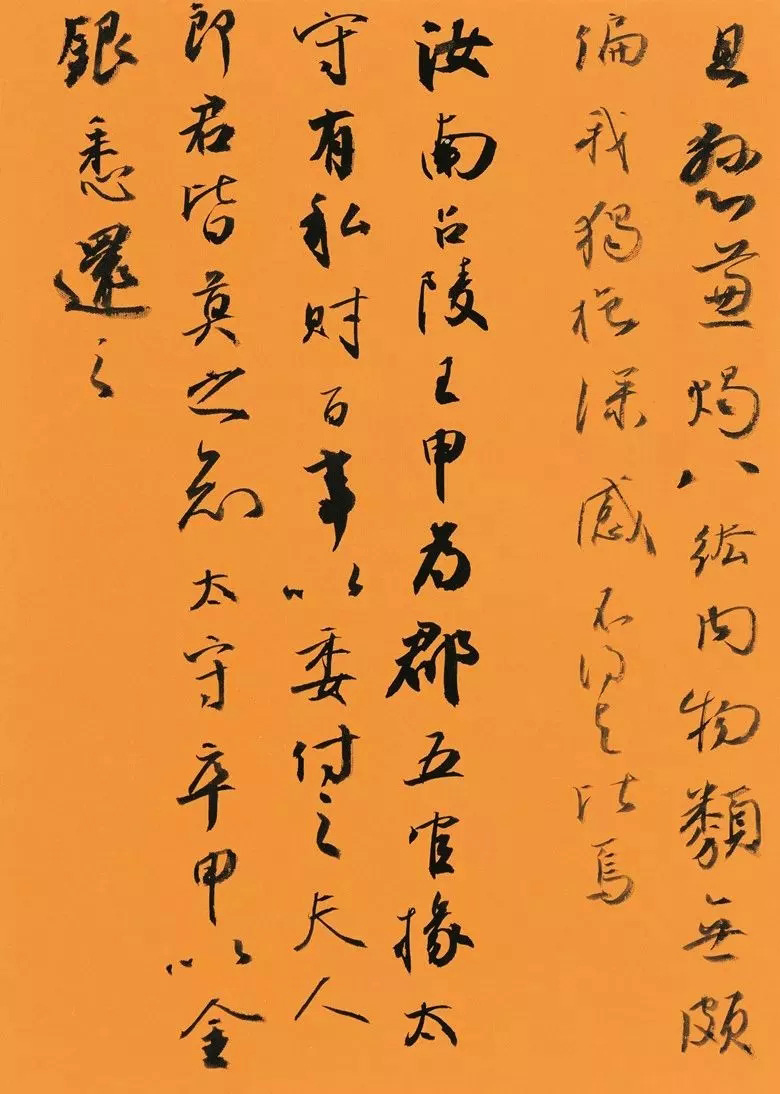 且懸兼燭八紘内物類無頗
偏我獨抱深感不得与比焉
汝南召陵王甲为郡五官掾太
守有私財百事以委付之夫人
郎君皆莫之知太守卒甲以金
銀悉還之